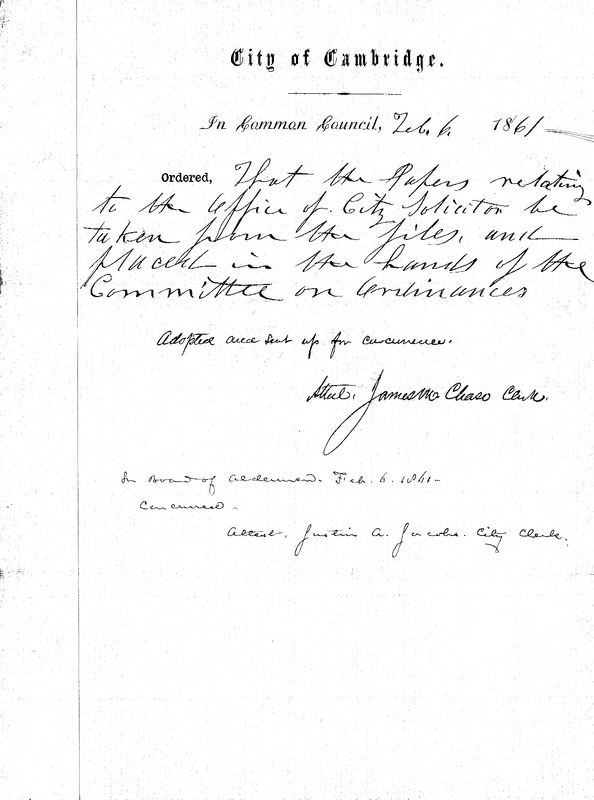 City of Cambridge.
In Common Council, Feb. 6. 1861
Ordered, That the Papers relating
to the Office of City Solicitor be
taken from the files, and
placed in the hands of the
Committee on Ordinances
Adopted and sent up for concurrence.
Attest. James M Chase Clerk.
In Board of Aldermen. Feb. 6. 1861-
Concurred-
Attest. Justin A. Jacobs. City Clerk.